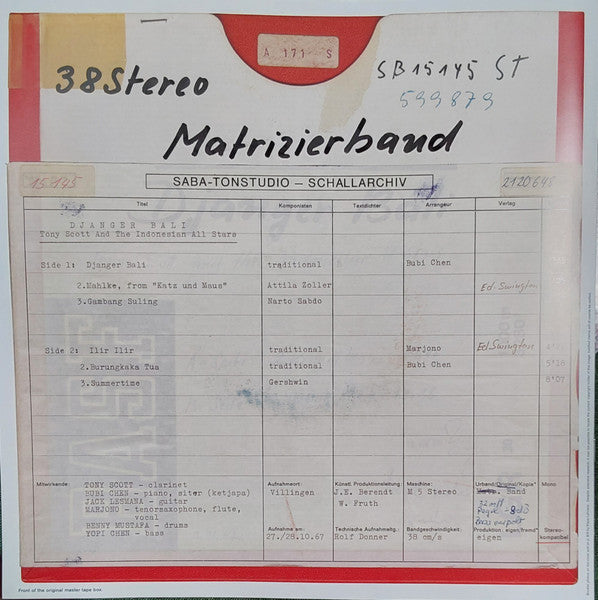 A 171 S
38 Stereo
SB 15145 ST
599879
Matrizierband
15145
SABA-TONSTUDIO – SCHALLARCHIV
2120645
Titel Komponisten Textdichter Arrangeur Verlag
DJANGER BALI
Tony Scott And The Indonesian All Stars
Side 1: Djanger Bali traditional Bubi Chen
2.Mahlke, from "Katz und Maus" Attila Zoller Ed. Swington
3.Gambang Suling Narto Sabdo
Side 2: Ilir Ilir traditional Marjono Ed. Swington
2.Burungkaka Tua traditional Bubi Chen 5'18
3.Summertime Gershwin 8'07
Mitwirkende: TONY SCOTT – clarinet
BUBI CHEN – piano, siter (ketjapa)
JACK LESMANA – guitar
MARJONO – tenorsaxophone, flute,
vocal
BENNY MUSTAFA – drums
YOPI CHEN – bass
Aufnahmeort:
Villingen
Aufnahme am:
27./28.10.67
Künstl. Produktionsleitung:
J.E. Berendt
W. Fruth
Technische Aufnahmeltg.:
Rolf Donner
Maschine:
M 5 Stereo
Bandgeschwindigkeit:
38 cm/s
Urband/Original/Kopie*
Band
Produktion: eigen/fremd*
eigen
Mono
Stereo-
kompatibel
Front of the original master tape box.